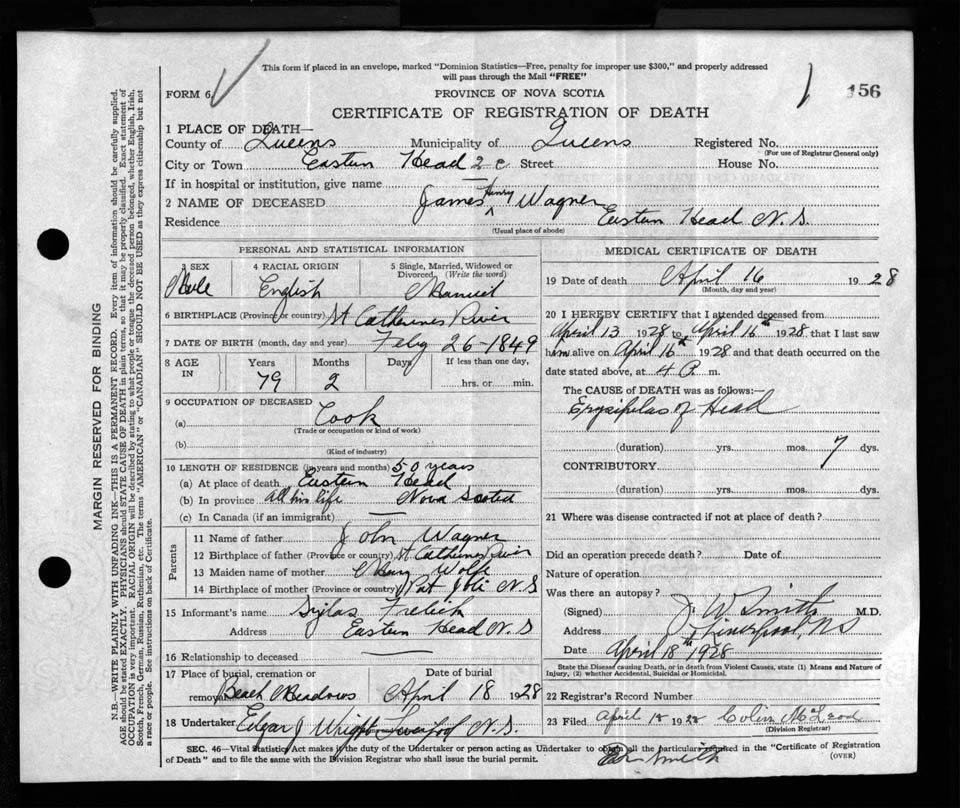 This form if placed in an envelope, marked "Dominion Statistics—Free, penalty for improper use $300," and properly addressed
will pass through the Mail "FREE"
FORM 6.
PROVINCE OF NOVA SCOTIA
156
CERTIFICATE OF REGISTRATION OF DEATH
1 PLACE OF DEATH—
County of Queens Municipality of Queens Registered No.
(For use of Registrar General only)
City or Town Eastern Head 2 c Street House No.
If in hospital or institution, give name —
2 NAME OF DECEASED James Henry Wagner
Residence Eastern Head N.S.
(Usual place of abode)
PERSONAL AND STATISTICAL INFORMATION
3 SEX 4 RACIAL ORIGIN 5 Single, Married, Widowed or
Divorced, (Write the word)
Male English Married
6 BIRTHPLACE (Province or country) St Catherines River
7 DATE OF BIRTH (month, day and year) Feby 26-1849
8 AGE IN Years Months Days If less than one day,
79 2 hrs. or min.
9 OCCUPATION OF DECEASED
(a) Cook
(Trade or occupation or kind of work)
(b)
(Kind of industry)
10 LENGTH OF RESIDENCE (in years and months) 50 years
(a) At place of death Eastern Head
(b) In province All his life Nova Scotia
(c) In Canada (if an immigrant) —
Parents
11 Name of father John Wagner
12 Birthplace of father (Province or country) St Catherines River
13 Maiden name of mother Mary Wolfe
14 Birthplace of mother (Province or country) Port Joli N S
15 Informant's name Sylas
Address Eastern Head N.S
16 Relationship to deceased —
17 Place of burial, cremation or Date of burial
removal Beach Meadows April 18 1928
18 Undertaker Edgar J Wright Liverpool N.S.
MEDICAL CERTIFICATE OF DEATH
19 Date of death April 16 1928
(Month, day and year)
20 I HEREBY CERTIFY that I attended deceased from
April 13 1928 to April 16th 1928 that I last saw
him alive on April 16th 1928 and that death occurred on
date stated above, at 4 P. m.
The CAUSE OF DEATH was as follows:—
Erysipelas of Head
(duration) yrs. mos. 7 dys.
CONTRIBUTORY
(duration) yrs. mos. dys.
21 Where was disease contracted if not at place of death?
Did an operation precede death? Date of
Nature of operation
Was there an autopsy?
(Signed) J. W Smith M.D.
Address Liverpool, NS
Date April 18th 1928
State the Disease causing Death, or in death from Violent Causes, state (1) Means and Nature of
Injury, (2) whether Accidental, Suicidal or Homicidal.
22 Registrar's Record Number
23 Filed April 18 1928 Colin McLeod
(Division Registrar)
SEC. 46—Vital Statistics Act makes it the duty of the Undertaker or person acting as Undertaker to obtain all the particulars required in the "Certificate of Registration
of Death" and to file the same with the Division Registrar who shall issue the burial permit.
Smith
(OVER)
MARGIN RESERVED FOR BINDING
N.B.—WRITE PLAINLY WITH UNFADING INK—THIS IS A PERMANENT RECORD. Every item of information should be carefully supplied.
AGE should be stated EXACTLY. PHYSICIANS should STATE CAUSE OF DEATH in plain terms, so that it may be properly classified. Exact statement of
OCCUPATION is very important. RACIAL ORIGIN will be described by stating to what people or tongue the deceased person belonged, whether English, Irish,
Scotch, French, German, Russian, Ruthenian, etc. The terms "AMERICAN" or "CANADIAN" SHOULD NOT BE USED as they express citizenship but not
a race or people. See instructions on back of Certificate.